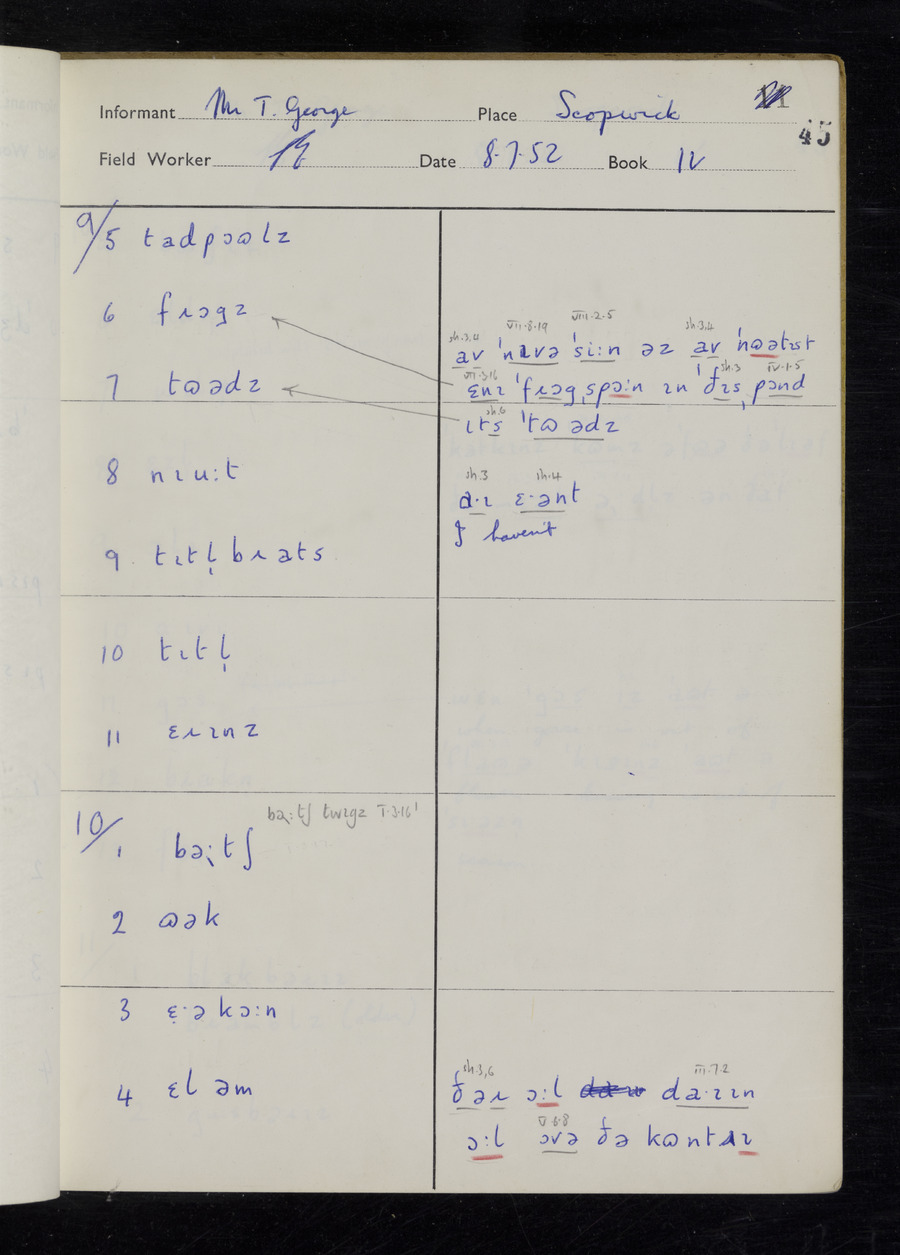 Informant Mr T. George Place Scopwick
45
Field Worker Date 8.7.52 Book IV
9/5 tadpɔɷlz
6 fɹɔgz
7 tɷədz
sh.3,4 VII.8.19 VIII.2.5 sh.3,4
av ˈnɪvə ˈsiːn əz av ˈnɷətɪst
VII.3.16 sh.3 IV.1.5
ɛnɪ ˈfɹɔgˌspɔːn ɪn ˈðɪsˌpɔnd
sh.6
ɩts ˈtɷədz
8 nɪuːt
sh.3 sh.4
ɑ·ɪ ɛ·ənt
I haven't
9 tɩtl̩bɹats
10 tɩtl̩
11 ɛɹɪnz
bə̣ːtʃ twɪgz I.3.16
10/1 bə̣ːtʃ
2 ɷək
3 ɛ̣·əkɔːn
4 ɛləm
sh.3,6 III.7.2
ðəɹ ɔːl da·ɪɪn
V.6.8
ɔːl ɔvə ðə kɷntɹɪ